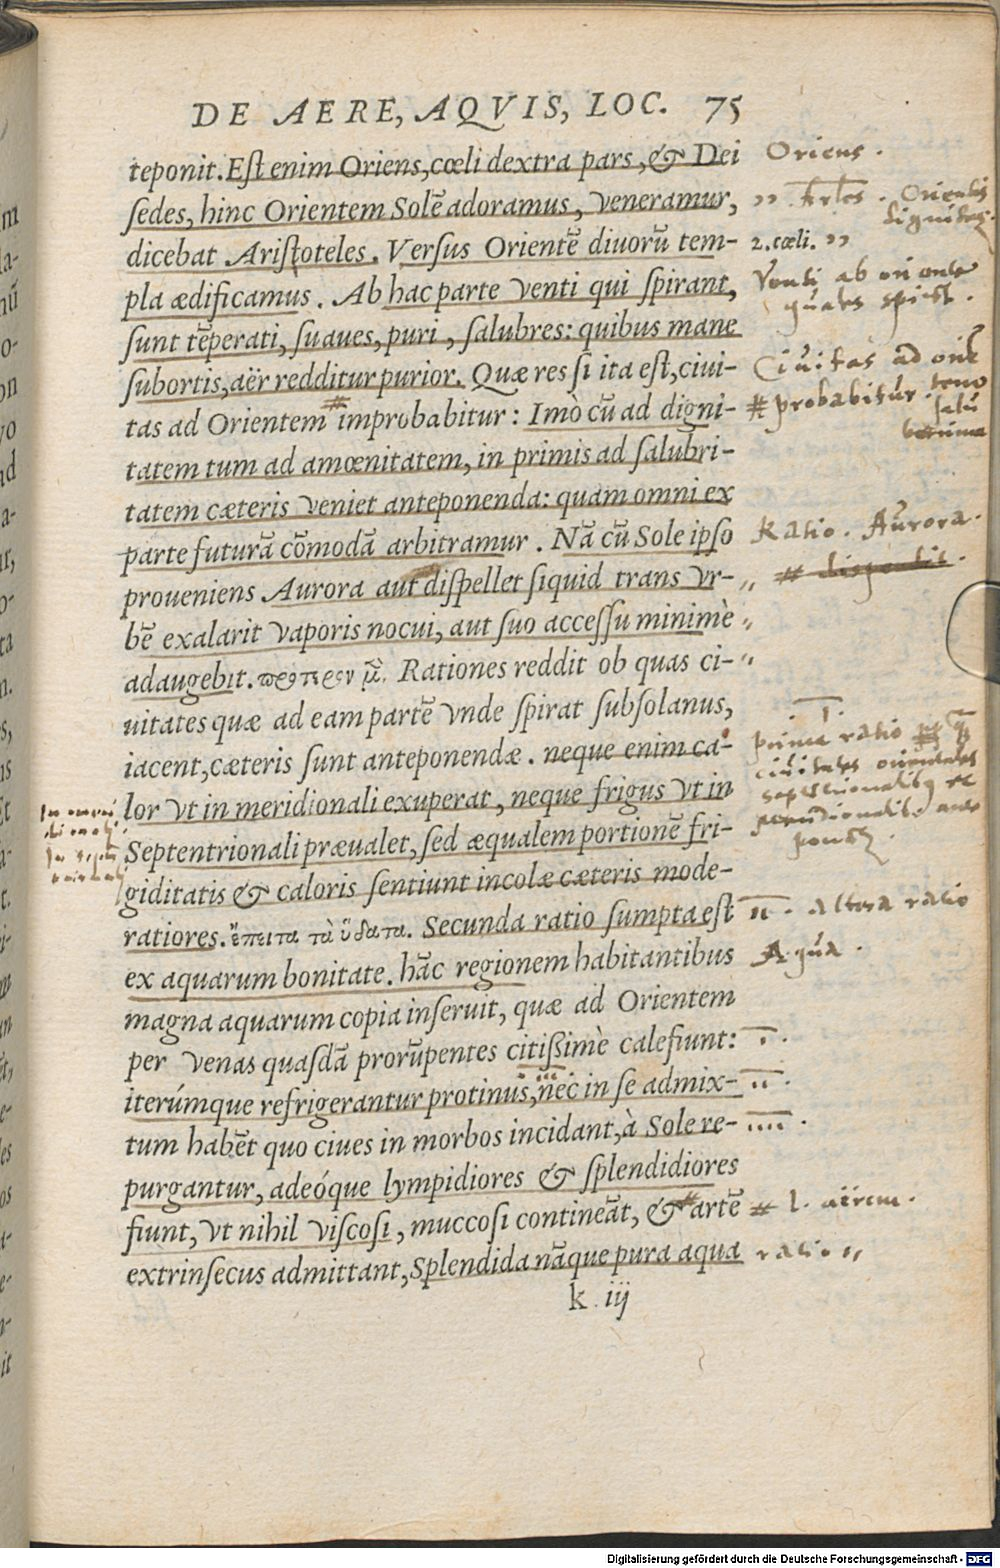 DE AERE, AQVIS, LOC. 75
teponit. Est enim Oriens, cœli dextra pars, & Dei
sedes, hinc Orientem Solẽ adoramus, veneramur,
dicebat Aristoteles. Versus Orientẽ diuorũ tem-
pla ædificamus. Ab hac parte venti qui spirant,
sunt tẽperati, suaues, puri, salubres: quibus mane
subortis, aër redditur purior. Quæ res si ita est, ciui-
tas ad Orientem # improbabitur: Imò cũ ad digni-
tatem tum ad amœnitatem, in primis ad salubri-
tatem cæteris veniet anteponenda: quam omni ex
parte futurã cõmodã arbitramur. Nã cũ Sole ipso
proueniens Aurora aut dispellet siquid trans vr-
bẽ exalarit vaporis nocui, aut suo accessu minimè
adaugebit. Rationes reddit ob quas ci-
uitates quæ ad eam partẽ vnde spirat subsolanus,
iacent, cæteris sunt anteponendæ. neque enim ca-
lor vt in meridionali exuperat, neque frigus vt in
Septentrionali præualet, sed æqualem portionẽ fri-
giditatis & caloris sentiunt incolæ cæteris mode-
ratiores. ἔπειτα τὰ ὕδατα. Secunda ratio sumpta est
ex aquarum bonitate. hãc regionem habitantibus
magna aquarum copia inseruit, quæ ad Orientem
per venas quasdã prorũpentes citissimè calefiunt:
iterúmque refrigerantur protinus, nec in se admix-
tum habẽt quo ciues in morbos incidant, à Sole re-
purgantur, adeóque lympidiores & splendidiores
fiunt, vt nihil viscosi, muccosi contineãt, & # artẽ
extrinsecus admittant, Splendida nãque pura aqua
k iij
Oriens.
Orientis
dignitas
2. cœli. ”
Venti ab oriente
quales spirẽt.
Ciuitas ad oriẽ
# probabitur.
Ratio. Aurora.
I.
prima ratio
ciuitates orientales
II. altera ratio
Aqua.
I.
II.
IIII.
# l. aërem.
ratio
Digitalisierung gefördert durch die Deutsche Forschungsgemeinschaft - DFG